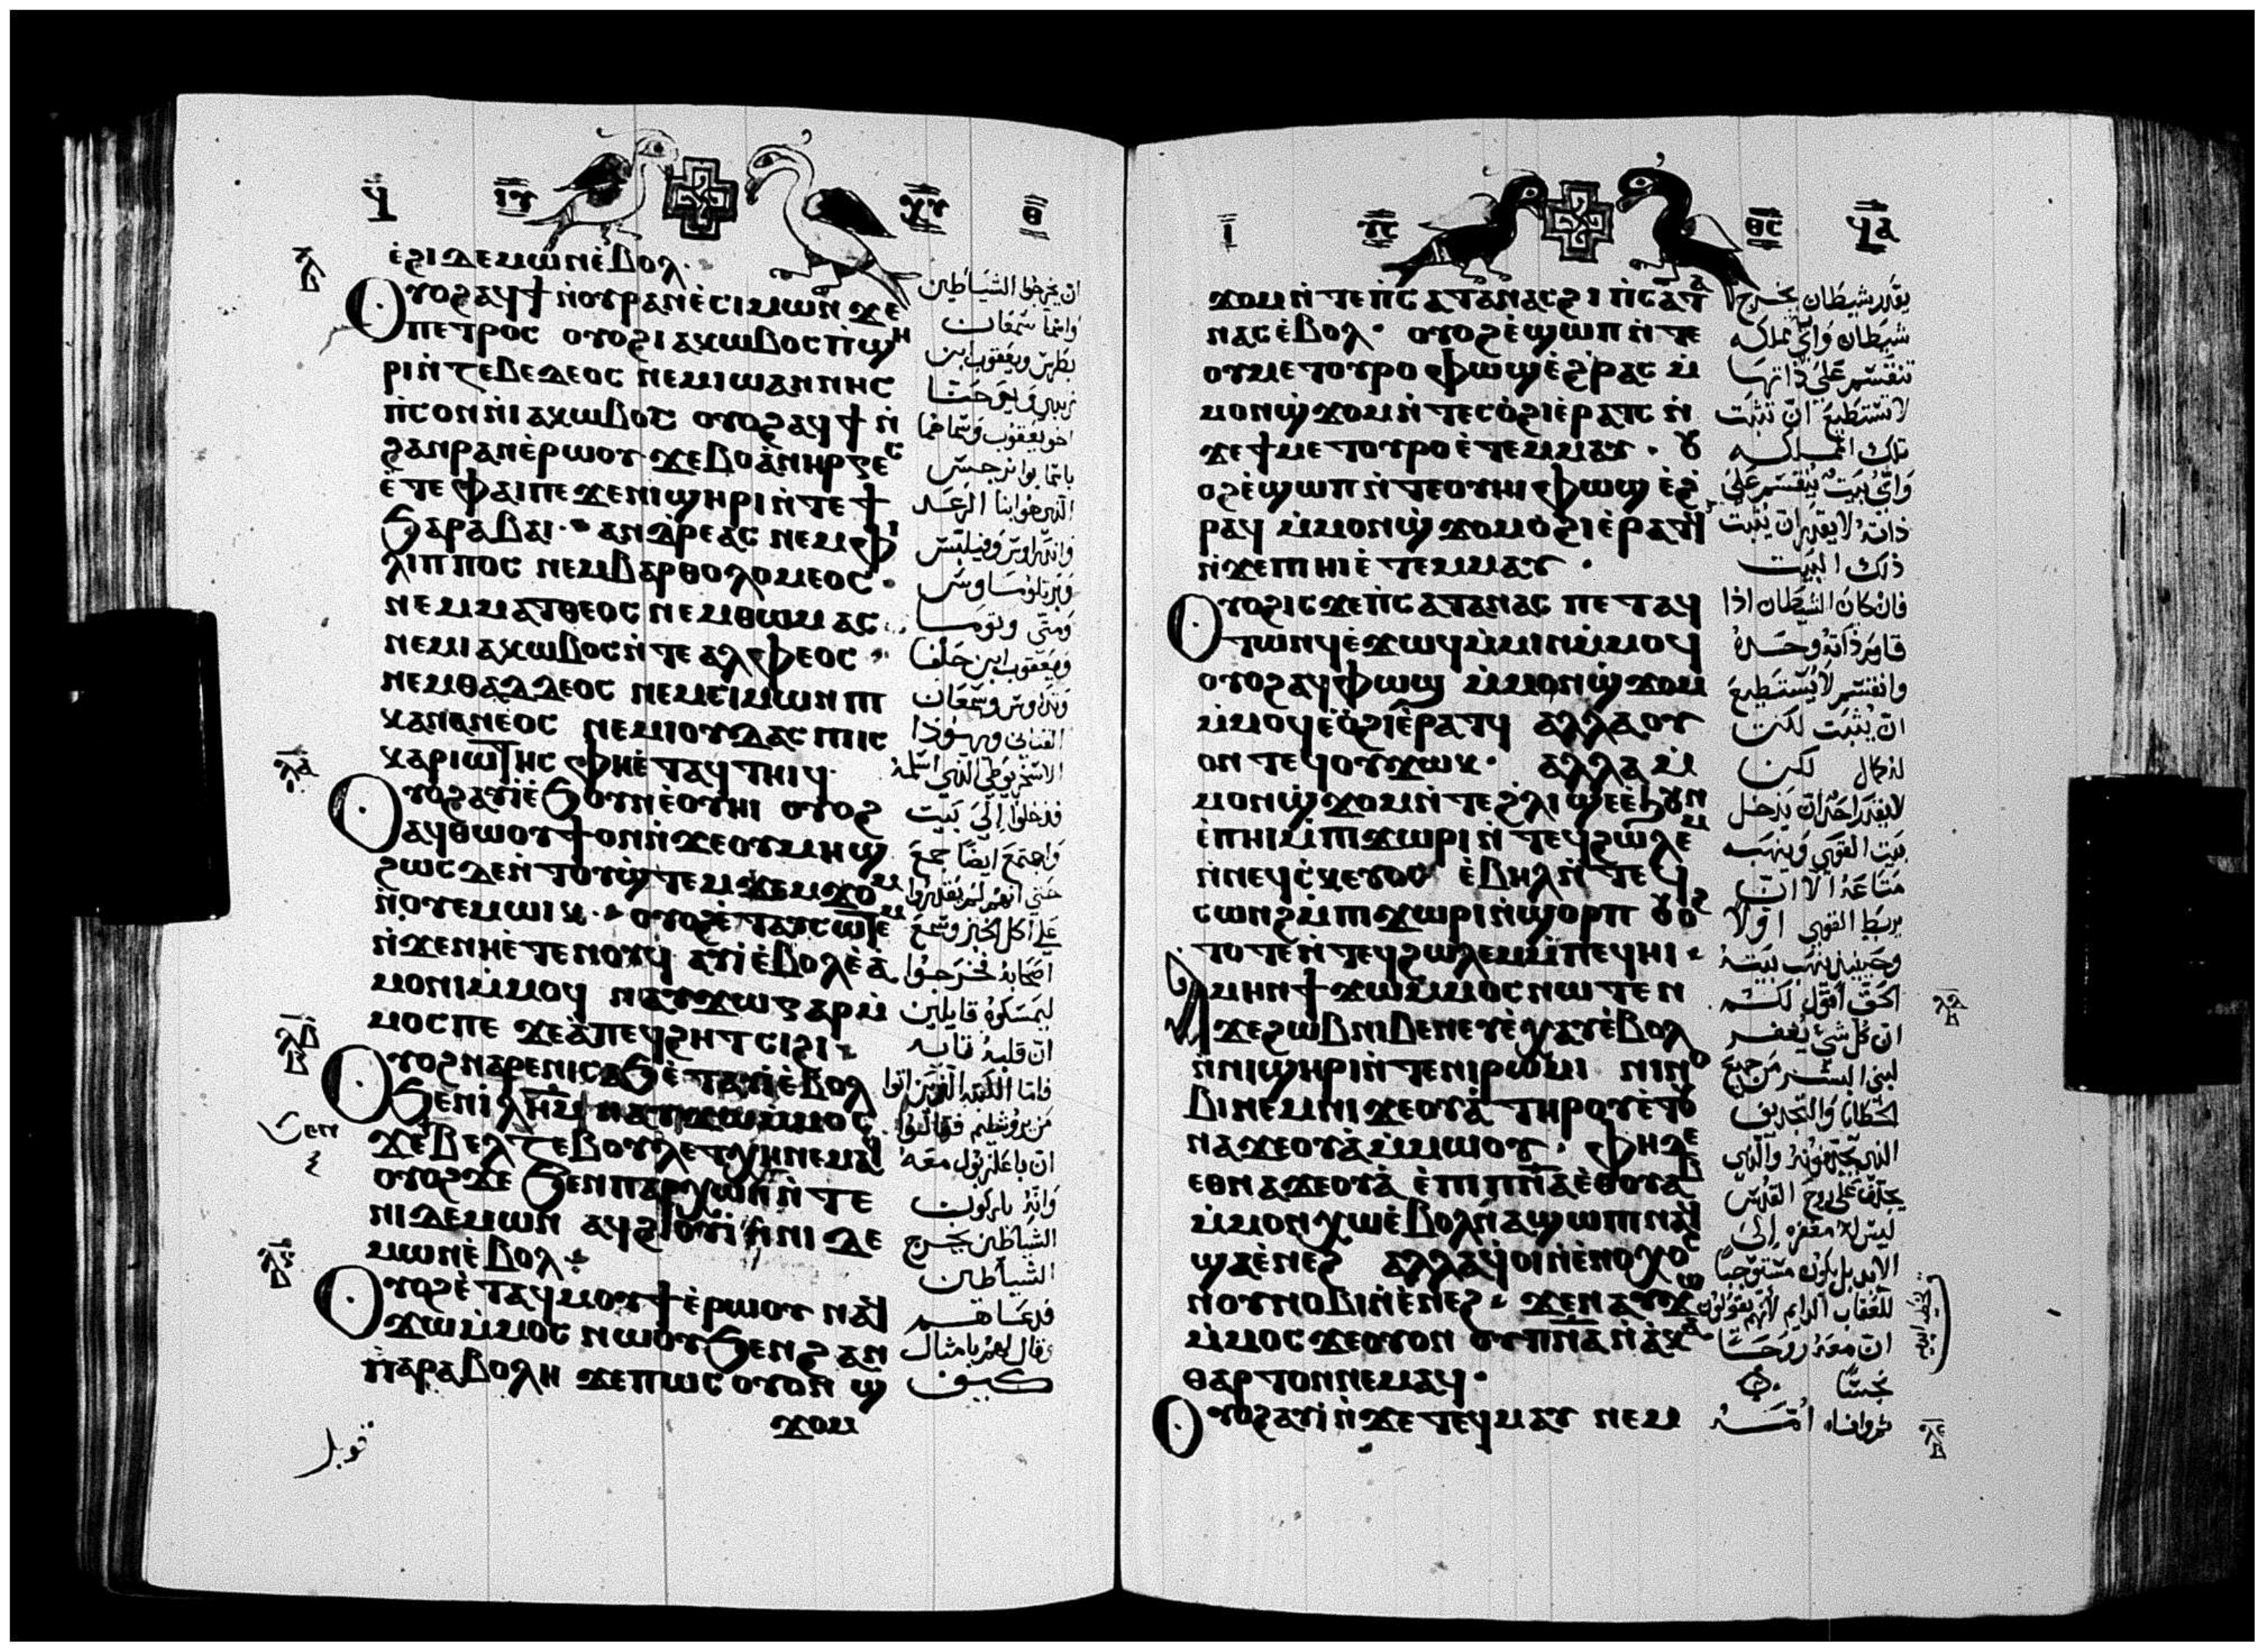 ϥ ⲓⲩ ⲭⲩ ⲑ
ⲉ̀ϩⲓⲇⲉⲙⲱⲛⲉ̀ⲃⲟⲗ·
ⲟⲩⲟϩⲁϥϯⲛ̀ⲟⲩⲣⲁⲛⲉ̀ⲥⲓⲙⲱⲛ ϫⲉ
ⲡⲉⲧⲣⲟⲥ ⲟⲩⲟϩⲓⲁⲕⲱⲃⲟⲥⲡ̀ϣⲏ
ⲣⲓⲛ̀ⲍⲉⲃⲉⲇⲉⲟⲥ ⲛⲉⲙⲓⲱⲁⲛⲛⲏⲥ
ⲡ̀ⲥⲟⲛⲛ̀ⲓⲁⲕⲱⲃⲟⲥ ⲟⲩⲟϩⲁϥϯ ⲛ̀
ϩⲁⲛⲣⲁⲛⲉ̀ⲣⲱⲟⲩ ϫⲉⲃⲟⲁ̀ⲛⲏⲣⲅⲉⲥ
ⲉ̀ⲧⲉ ⲫⲁⲓⲡⲉ ϫⲉⲛⲓϣⲏⲣⲓⲛ̀ⲧⲉϯ
ϧⲁⲣⲁⲃⲁⲓ· ⲁⲛⲇⲣⲉⲁⲥ ⲛⲉⲙⲫⲓ
ⲗⲓⲡⲡⲟⲥ ⲛⲉⲙⲃⲁⲣⲑⲟⲗⲟⲙⲉⲟⲥ·
ⲛⲉⲙⲙⲁⲧⲑⲉⲟⲥ ⲛⲉⲙⲑⲱⲙⲁⲥ
ⲛⲉⲙⲓⲁⲕⲱⲃⲟⲥⲛ̀ⲧⲉ ⲁⲗⲫⲉⲟⲥ·
ⲛⲉⲙⲑⲁⲇⲇⲉⲟⲥ ⲛⲉⲙⲥⲓⲙⲱⲛ ⲡⲓ
ⲕⲁⲛⲁⲛⲉⲟⲥ ⲛⲉⲙⲓⲟⲩⲇⲁⲥ ⲡⲓⲓⲥ
ⲕⲁⲣⲓⲱⲧⲏⲥ ⲫⲏⲉ̀ⲧⲁϥⲧⲏⲓϥ·
ⲟⲩⲟϩⲁⲩⲓ̀ⲉ̀ϧⲟⲩⲛⲉ̀ⲟⲩⲏⲓ ⲟⲩⲟϩ
ⲁϥⲑⲱⲟⲩϯⲟⲛⲛ̀ϫⲉⲟⲩⲙⲏϣ
ϩⲱⲥⲇⲉⲛ̀ⲧⲟⲩϣ̀ⲧⲉⲙϫⲉⲙϫⲟⲙ
ⲛ̀ⲟⲩⲉⲙⲱⲓⲕ· ⲟⲩⲟϩⲉ̀ⲧⲁⲩⲥⲱⲧⲉⲙ
ⲛ̀ϫⲉⲛⲏⲉ̀ⲧⲉⲛⲟⲩϥ ⲁⲩⲓ̀ⲉ̀ⲃⲟⲗⲉ̀ⲁ̀
ⲙⲟⲛⲓⲙ̀ⲙⲟϥ ⲛⲁⲩϫⲱⲅⲁⲣⲙ̀
ⲙⲟⲥⲡⲉ ϫⲉⲁ̀ⲡⲉϥϩⲏⲧⲥⲓϩⲓ·
ⲟⲩⲟϩⲛⲁⲣⲉⲛⲓⲥⲁϧⲉ̀ⲧⲁⲩⲓ̀ⲉ̀ⲃⲟⲗ
ϧⲉⲛⲓ̀ⲗⲏⲙ ⲛⲁⲩϫⲱⲙ̀ⲙⲟⲥ
ϫⲉⲃⲉⲗⲍⲉⲃⲟⲩⲗ ⲉⲧⲭⲏⲛⲉⲙⲁϥ
ⲟⲩⲟϩϫⲉ ϧⲉⲛⲡⲁⲣⲭⲱⲛⲛ̀ⲧⲉ
ⲛⲓⲇⲉⲙⲱⲛ ⲁϥϩⲓⲟⲩⲓ̀ⲛ̀ⲛⲓⲇⲉ
ⲙⲱⲛⲉ̀ⲃⲟⲗ
ⲟⲩⲟϩⲉ̀ⲧⲁϥⲙⲟⲩϯⲉ̀ⲣⲱⲟⲩ ⲛⲁϥ
ϫⲱⲙ̀ⲙⲟⲥ ⲛⲱⲟⲩϧⲉⲛϩⲁⲛ
ⲡⲁⲣⲁⲃⲟⲗⲏ ϫⲉⲡⲱⲥ ⲟⲩⲟⲛ ϣ
ϫⲟⲙ
ان يخرجوا الشياطين
واسما سمعان
بطرس ويعقوب ابن
زبدي ويوحنا
اخو يعقوب وسماهما
باسما بوانرجس
الذي هو ابنا الرعد
واندراوس وفيلبس
وبرتلوماوس
ومتى وتوما
ويعقوب ابن حلفا
وتداوس وسمعان
القناني ويهوذا
الاسخريوطي الذي اسلمه
فدخلوا الى بيت
واجتمع ايضا جمع
حتى انهم لم يقدروا
على اكل الخبز وسمع
اصحابه فخرجوا
ليمسكوه قايلين
ان قلبه تايه
فاما الكتبه الذين اتوا
من يروشليم فقالوا
ان باعلزبول معه
وانه باركون
الشياطين يخرج
الشياطين
فدعاهم
وقال لهم بامثال
كيف
ⲓ ⲩⲥ ⲑⲥ ϥⲁ
ϫⲟⲙⲛ̀ⲧⲉⲡ̀ⲥⲁⲧⲁⲛⲁⲥϩⲓⲡ̀ⲥⲁⲧⲁ
ⲛⲁⲥⲉ̀ⲃⲟⲗ· ⲟⲩⲟϩⲉ̀ϣⲱⲡ ⲛ̀ⲧⲉ
ⲟⲩⲙⲉⲧⲟⲩⲣⲟ ⲫⲱϣⲉ̀ϩ̀ⲣⲁⲥ ⲙ̀
ⲙⲟⲛϣ̀ϫⲟⲙⲛ̀ⲧⲉⲥⲟ̀ϩⲓⲉ̀ⲣⲁⲧⲥ ⲛ̀
ϫⲉϯⲙⲉⲧⲟⲩⲣⲟⲉ̀ⲧⲉⲙⲙⲁⲩ· ⲟⲩ
ⲟϩⲉ̀ϣⲱⲡ ⲛ̀ⲧⲉⲟⲩⲏⲓ ⲫⲱϣ ⲉ̀ϩ
ⲣⲁϥ ⲙ̀ⲙⲟⲛϣ̀ϫⲟⲙⲟ̀ϩⲓⲉ̀ⲣⲁⲧϥ
ⲛ̀ϫⲉⲡⲓⲏⲓⲉ̀ⲧⲉⲙⲙⲁⲩ·
ⲟⲩⲟϩⲓⲥϫⲉⲡ̀ⲥⲁⲧⲁⲛⲁⲥ ⲡⲉⲧⲁϥ
ⲧⲱⲛϥⲉ̀ϫⲱϥⲙ̀ⲙⲓⲛⲙ̀ⲙⲟϥ
ⲟⲩⲟϩⲁϥⲫⲱϣ ⲙ̀ⲙⲟⲛϣ̀ϫⲟⲙ
ⲙ̀ⲙⲟϥⲉ̀ⲟ̀ϩⲓⲉ̀ⲣⲁⲧϥ ⲁⲗⲗⲁⲟⲩ
ⲟⲛⲧⲉϥⲟⲩϫⲱⲕ· ⲁⲗⲗⲁⲙ̀
ⲙⲟⲛϣ̀ϫⲟⲙⲛ̀ⲧⲉϩ̀ⲗⲓ ϣⲉⲉ̀ϧⲟⲩⲛ
ⲉ̀ⲡⲏⲓⲙ̀ⲡⲓϫⲱⲣⲓ ⲛ̀ⲧⲉϥϩⲱⲗⲉⲙ
ⲛ̀ⲛⲉϥⲥ̀ⲕⲉⲩⲟⲥ ⲉ̀ⲃⲏⲗⲛ̀ⲧⲉϥ
ⲥⲱⲛϩⲙ̀ⲡⲓϫⲱⲣⲓⲛ̀ϣⲟⲣⲡ ⲟⲩⲟϩ
ⲧⲟⲧⲉⲛ̀ⲧⲉϥϩⲱⲗⲉⲙⲙ̀ⲡⲉϥⲏⲓ·
ⲁⲙⲏⲛϯϫⲱⲙ̀ⲙⲟⲥⲛⲱⲧⲉⲛ
ϫⲉϩⲱⲃⲛⲓⲃⲉⲛⲉⲩⲉ̀ⲭⲁⲩⲉ̀ⲃⲟⲗ
ⲛ̀ⲛⲓϣⲏⲣⲓⲛ̀ⲧⲉⲛⲓⲣⲱⲙⲓ ⲛⲓⲛⲟ
ⲃⲓⲛⲉⲙⲛⲓϫⲉⲟⲩⲁ̀ ⲧⲏⲣⲟⲩⲉ̀ⲧⲟⲩ
ⲛⲁϫⲉⲟⲩⲁ̀ⲙ̀ⲙⲱⲟⲩ· ⲫⲏⲇⲉ
ⲉⲑⲛⲁϫⲉⲟⲩⲁ̀ ⲉ̀ⲡⲓⲡⲛⲁⲉ̀ⲑⲟⲩⲁⲃ
ⲙ̀ⲙⲟⲛⲭⲱⲉ̀ⲃⲟⲗⲛⲁϣⲱⲡⲓⲛⲁϥ
ϣⲁⲉ̀ⲛⲉϩ ⲁⲗⲗⲁϥⲟⲓⲛ̀ⲉⲛⲟⲭⲟⲥ
ⲛⲟⲩⲛⲟⲃⲓⲛ̀ⲉ̀ⲛⲉϩ· ϫⲉⲛⲁⲩϫⲱ
ⲙ̀ⲙⲟⲥ ϫⲉⲟⲩⲟⲛ ⲟⲩⲡⲛⲁⲛ̀ⲁ̀ⲕⲁ
ⲑⲁⲣⲧⲟⲛⲛⲉⲙⲁϥ·
ⲟⲩⲟϩⲁⲩⲓ̀ⲛ̀ϫⲉⲧⲉϥⲙⲁⲩ ⲛⲉⲙ
يقدر شيطان يخرج
شيطان واي مملكه
تنقسم على ذاتها
لا تستطيع ان تثبت
تلك المملكه
واي بيت ينقسم على
ذاته لا يقدر ان يثبت
ذلك البيت
فان كان الشيطان اذا
قاوم ذاته وحده
وانقسم لا يستطيع
ان يثبت لكن
له كمال لكن
لا يقدر احد ان يدخل
بيت القوي وينهب
متاعه الا ان
يربط القوي اولا
وحينيذ ينهب بيته
الحق اقول لكم
ان كل شي يغفر
لبني البشر من جميع
الخطايا والتجديف
الذي يجدفونه والذي
يجدف على روح القدس
ليس له مغفره الى
الابد بل يكون مستوجبا
للعقاب الدايم لانهم يقولون
ان معه روحا
نجسا
ثم وافاه امه